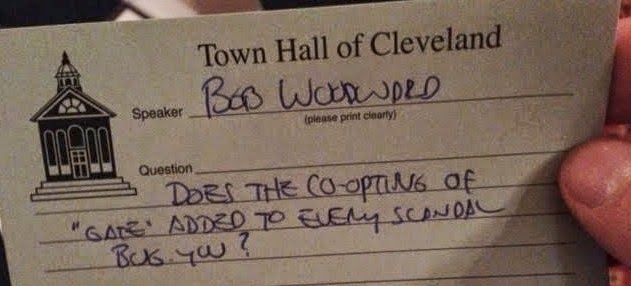 Town Hall of Cleveland
Speaker BOB WOODWORD
(please print clearly)
Question
DOES THE CO-OPTING OF
"GATE" ADDED TO EVERY SCANDAL
BUG YOU?